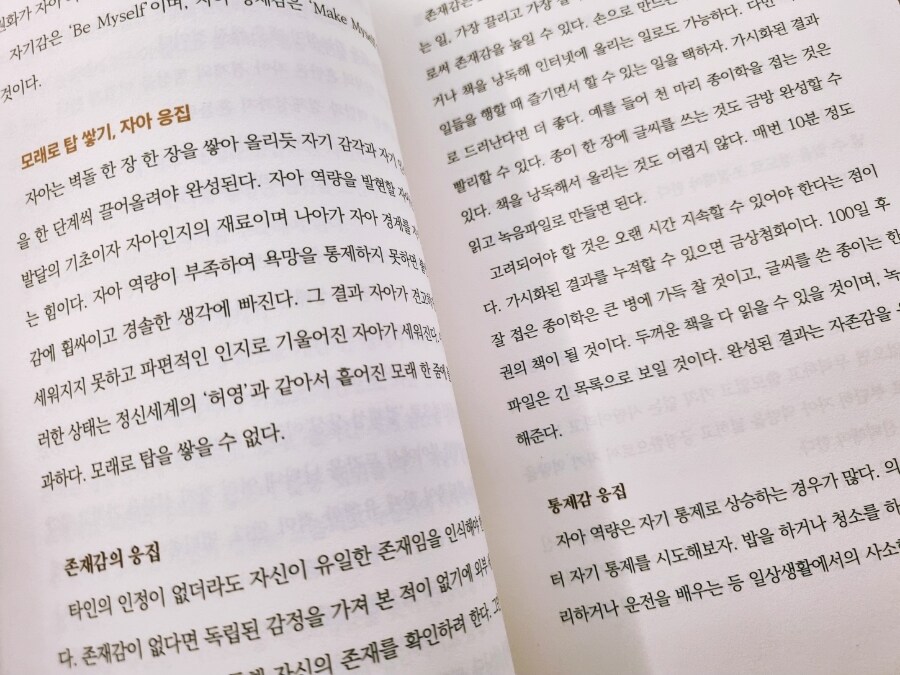 자기감은 'Be Myself'이며, 자아 경제감은 'Make Myself
것이다.
모래로 탑 쌓기, 자아 응집
자아는 벽돌 한 장 한 장을 쌓아 올리듯 자기 감각과 자기
을 한 단계씩 끌어올려야 완성된다. 자아 역량을 발현할
발달의 기초이자 자아인지의 재료이며 나아가 자아 경제를
는 힘이다. 자아 역량이 부족하여 욕망을 통제하지 못하면
감에 휩싸이고 경솔한 생각에 빠진다. 그 결과 자아가 견고하
세워지지 못하고 파편적인 인지로 기울어진 자아가 세워진다.
러한 상태는 정신세계의 '허영'과 같아서 흩어진 모래 한 줌에
과하다. 모래로 탑을 쌓을 수 없다.
존재감의 응집
타인의 인정이 없더라도 자신이 유일한 존재임을 인식해야
다. 존재감이 없다면 독립된 감정을 가져 본 적이 없기에 외부
자신의 존재를 확인하려 한다.
존재감은
는 일, 가장 끌리고 가장
로써 존재감을 높일 수 있다. 손으로 만드는
거나 책을 낭독해 인터넷에 올리는 일로도 가능하다. 다만
일들을 행할 때 즐기면서 할 수 있는 일을 택하자. 가시화된 결과
로 드러난다면 더 좋다. 예를 들어 천 마리 종이학을 접는 것은
빨리할 수 있다. 종이 한 장에 글씨를 쓰는 것도 금방 완성할 수
있다. 책을 낭독해서 올리는 것도 어렵지 않다. 매번 10분 정도
읽고 녹음파일로 만들면 된다.
고려되어야 할 것은 오랜 시간 지속할 수 있어야 한다는 점이
다. 가시화된 결과를 누적할 수 있으면 금상첨화이다. 100일 후
잘 접은 종이학은 큰 병에 가득 찰 것이고, 글씨를 쓴 종이는 한
권의 책이 될 것이다. 두꺼운 책을 다 읽을 수 있을 것이며, 녹
파일은 긴 목록으로 보일 것이다. 완성된 결과는 자존감을
해준다.
통제감 응집
자아 역량은 자기 통제로 상승하는 경우가 많다. 의
터 자기 통제를 시도해보자. 밥을 하거나 청소를 하
리하거나 운전을 배우는 등 일상생활에서의 사소